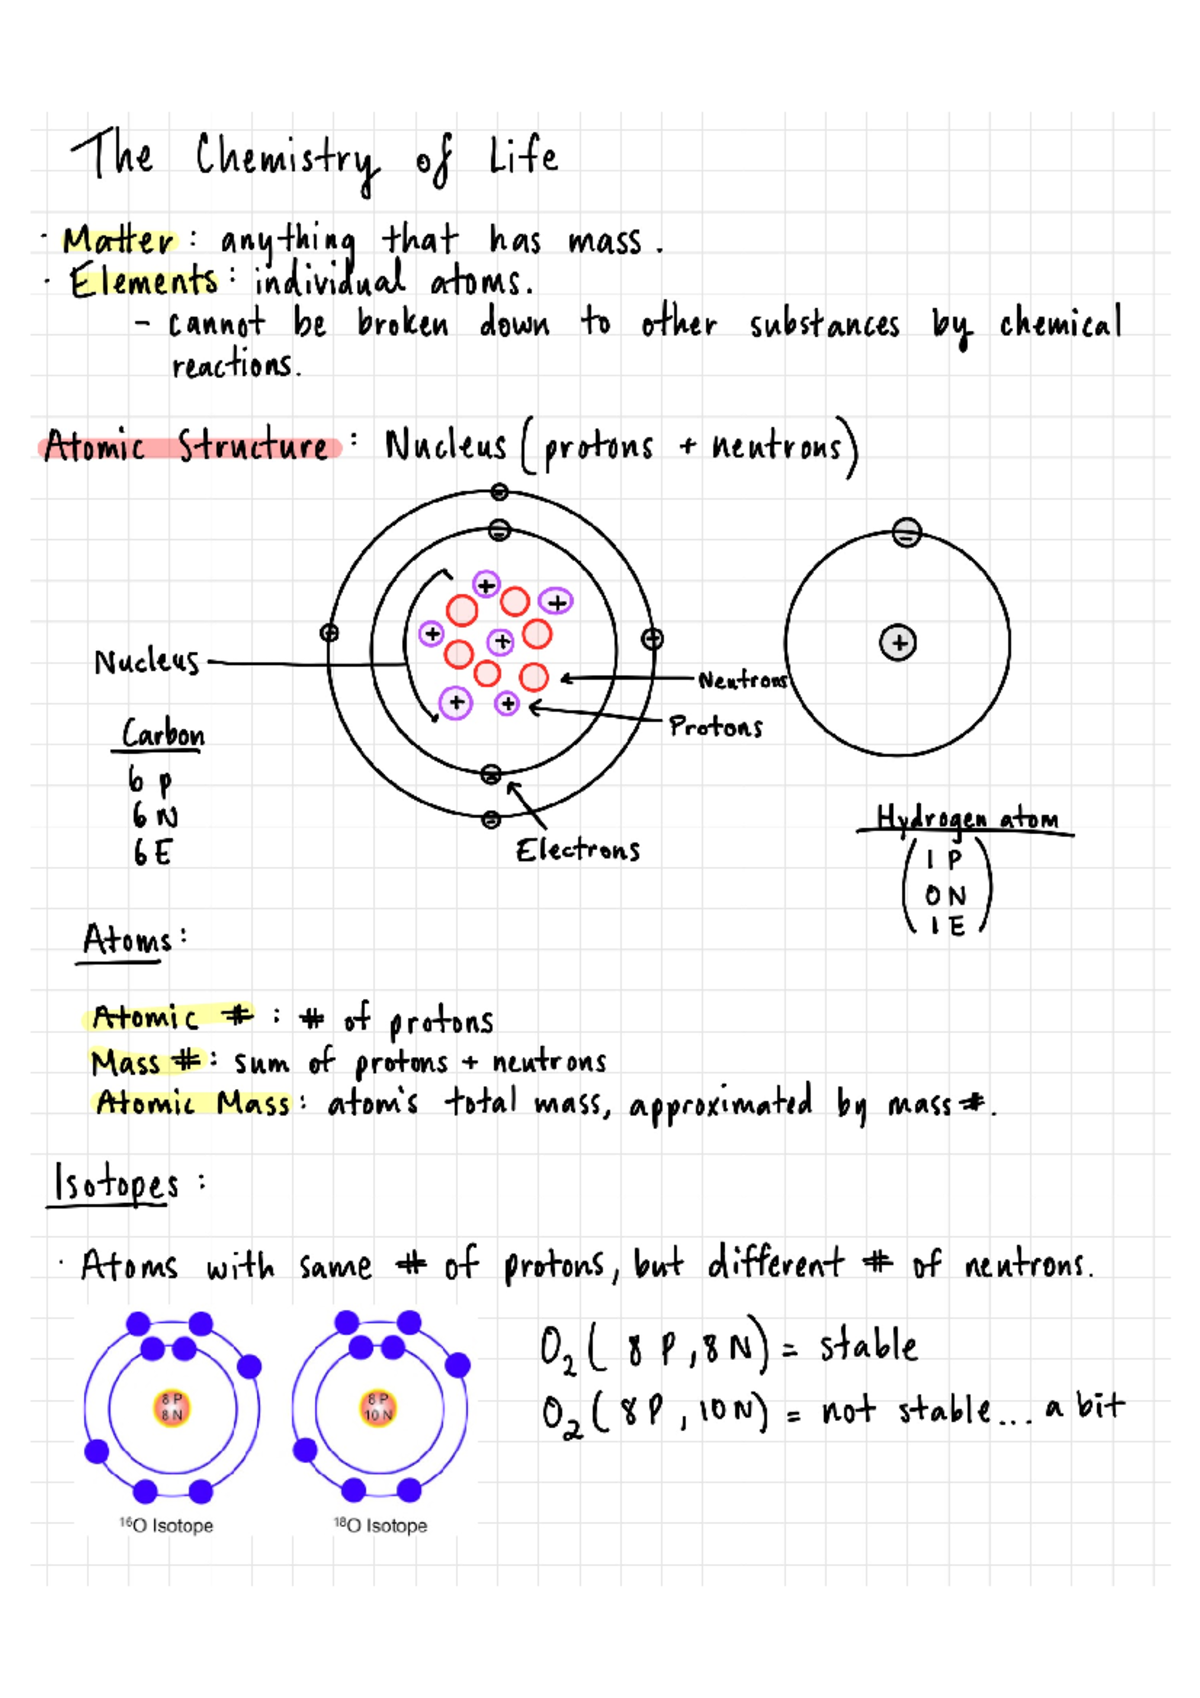 The Chemistry of Life
· Matter: anything that has mass.
· Elements: individual atoms.
- cannot be broken down to other substances by chemical
reactions.
Atomic Structure: Nucleus (protons + neutrons)
Nucleus
Neutrons
Protons
Electrons
Carbon
6 P
6 N
6 E
Hydrogen atom
1 P
0 N
1 E
Atoms:
Atomic #: # of protons
Mass #: sum of protons + neutrons
Atomic Mass: atom's total mass, approximated by mass #.
Isotopes:
· Atoms with same # of protons, but different # of neutrons.
8 P
8 N
¹⁶O Isotope
8 P
10 N
¹⁸O Isotope
O₂ (8 P, 8 N) = stable
O₂ (8 P, 10 N) = not stable... a bit